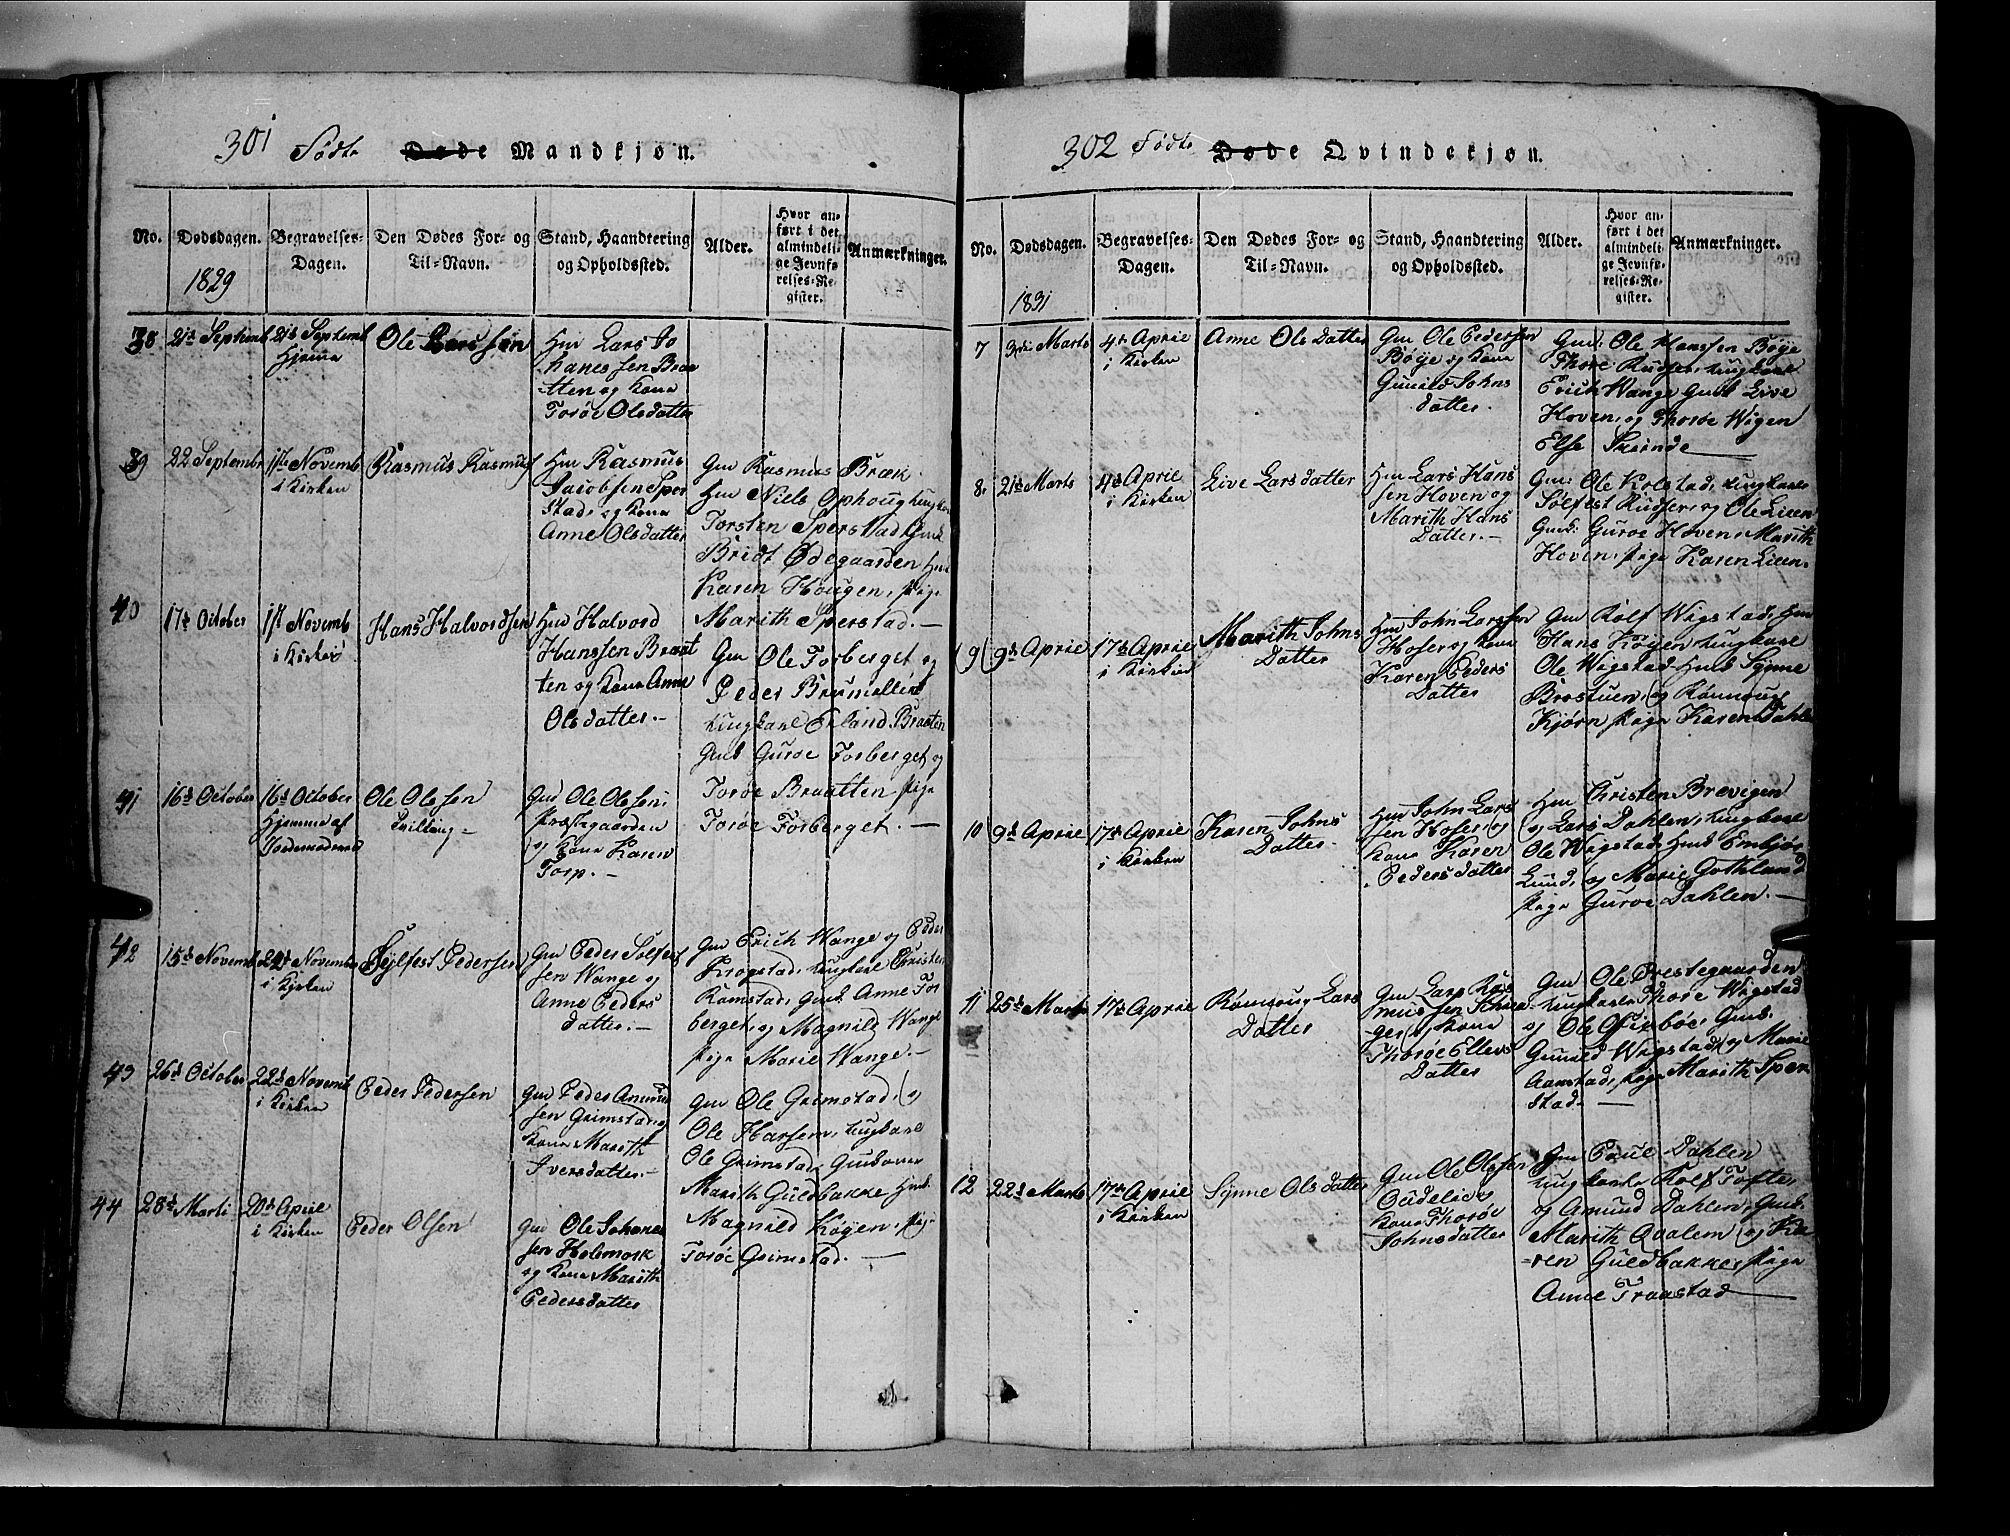 301 Födte Døde Mandkjøn.
No.
Dødsdagen.
1829
Begravelses-
Dagen.
Den Dødes For- og
Til-Navn.
Stand, Haandtering
og Opholdssted.
Alder.
Hvor an-
ført i det
almindeli-
ge Jevnfø-
relses-Re-
gister.
Anmærkninger.
38
21d Septemb
21d Septemb
Hjemme
Ole Larssen
Lars Jo
hanessen Bra
tten og Kone
Torøe Olsdatter
39
22 Septembr
1ste Novemb
i Kirken
Rasmus Rasmus
Rasmus
Jacobsen Sper
stad, og Kone
Anne Olsdatter
Rasmus Bræk
Niels Ophoug Ungkar
Torsten Sperstad
Bridt Ødegaarden
Karen Hougen, Pige
Marith Sperstad. —
40
17d October
1st Novemb
i Kirken
Hans Halvordsen
Halvord
Hanssen Braat
ten og Kone Anne
Olsdatter. —
Ole Forberget og
Peder
Ungkarl Erland Braaten
Guroe Forberget og
Torøe Braatten Pige
Torøe Forberget. —
41
16d October
16d October
Hjemme af
Jordemoderen
Ole Olessen
Tvilling —
Ole Olessen
Præstegaarden
og Kone Karen
Torp. —
42
15d Novemb
22d Novemb
i Kirken
Sylfest Pedersen
Peder Solfest
sen Wange og
Anne Peders
datter. —
Erich Wange og Peder
Krogstad, Ungkarl Christen
Ramstad, Anne For
berget, og Magnild Wange
Pige Marie Wange. —
43
26d October
22d Novemb
i Kirken
Peder Pedersen
Peder Amund
sen Grimstad og
Kone Marith
Iversdatter. —
Ole Grimstad, og
Ole Harsem, Ungkarl
Ole Grimstad,
Marith Guldbakke
Magnild Køgen, Pig.
Torøe Grimstad. —
44
28d Marti
20d April
i Kirken
Peder Olsen
Ole Johane
sen Holemork
og Kone Marith
Pedersdatter
302 Födte Døde Qvindekjøn.
No.
Dødsdagen.
1831
Begravelses-
Dagen.
Den Dødes For- og
Til-Navn.
Stand, Haandtering
og Opholdssted.
Alder.
Hvor an-
ført i det
almindeli-
ge Jevnfø-
relses-Re-
gister.
Anmærkninger.
7
3die Marts
4d Aprie
i Kirken
Anne Olsdatter
Ole Pedersen
Bøye og Kone
Gunild Johns
datter.
Ole Hanssen Bøje
Thore Rudser, Ungkarl
Erich Wange Live
Hoven, og Thorøe Wigen
Else Skiinde —
8.
21d Marts
4d Aprie
i Kirken
Live Larsdatter
Lars Hans
sen Hoven og
Marith Hans
Datter. —
Ole Kolstad, Ungkarl
Sølfest Rudser, og Ole Lieen
Guroe Hoven, Marith
Hoven, Pige Karen Lieen.
9
9d Aprie
17d Aprie
i Kirken
Marith Johns
Datter
John Larssen
Hoser og Kone
Karen Peders
Datter
Rolf Wigstad,
Hans Køyen Ungkarl
Ole Wigstad Synne
Brostuen, og Rønnoug
Kjørn Pige Karen Dahle
10
9d Aprie
17d Aprie
i Kirken
Karen Johns
Datter.
John Lars
sen Hoser og
Kone Karen
Pedersdatter
Christen Brevigen
og Lars Dahlen, Ungkarl
Ole Wigstad,
Lund, og Marie Gothlund
Pige Guroe Dahlen. —
11
25d Marts
17d Aprie
Rønnoug Lars
Datter
Lars Ras
mussen
og Kone
Thorøe Ellevs
Datter
Ole Prestegaarden
Ungkarle Thore Wigstad
og Ole
Gunild Wigstad og Marie
Aanstad, Pige Marith Sper
stad. —
12
22d Marts
17d Aprie
i Kirken
Synne Olsdatter
Ole Olssen
og
Kone Thorøe
Johnsdatter
Poul Dahlen
Ungkarle Rolf Tofte
og Amund Dahlen,
Marith Qvalem og Ka
ren Guldbakke, Pige
Anne Traastad —